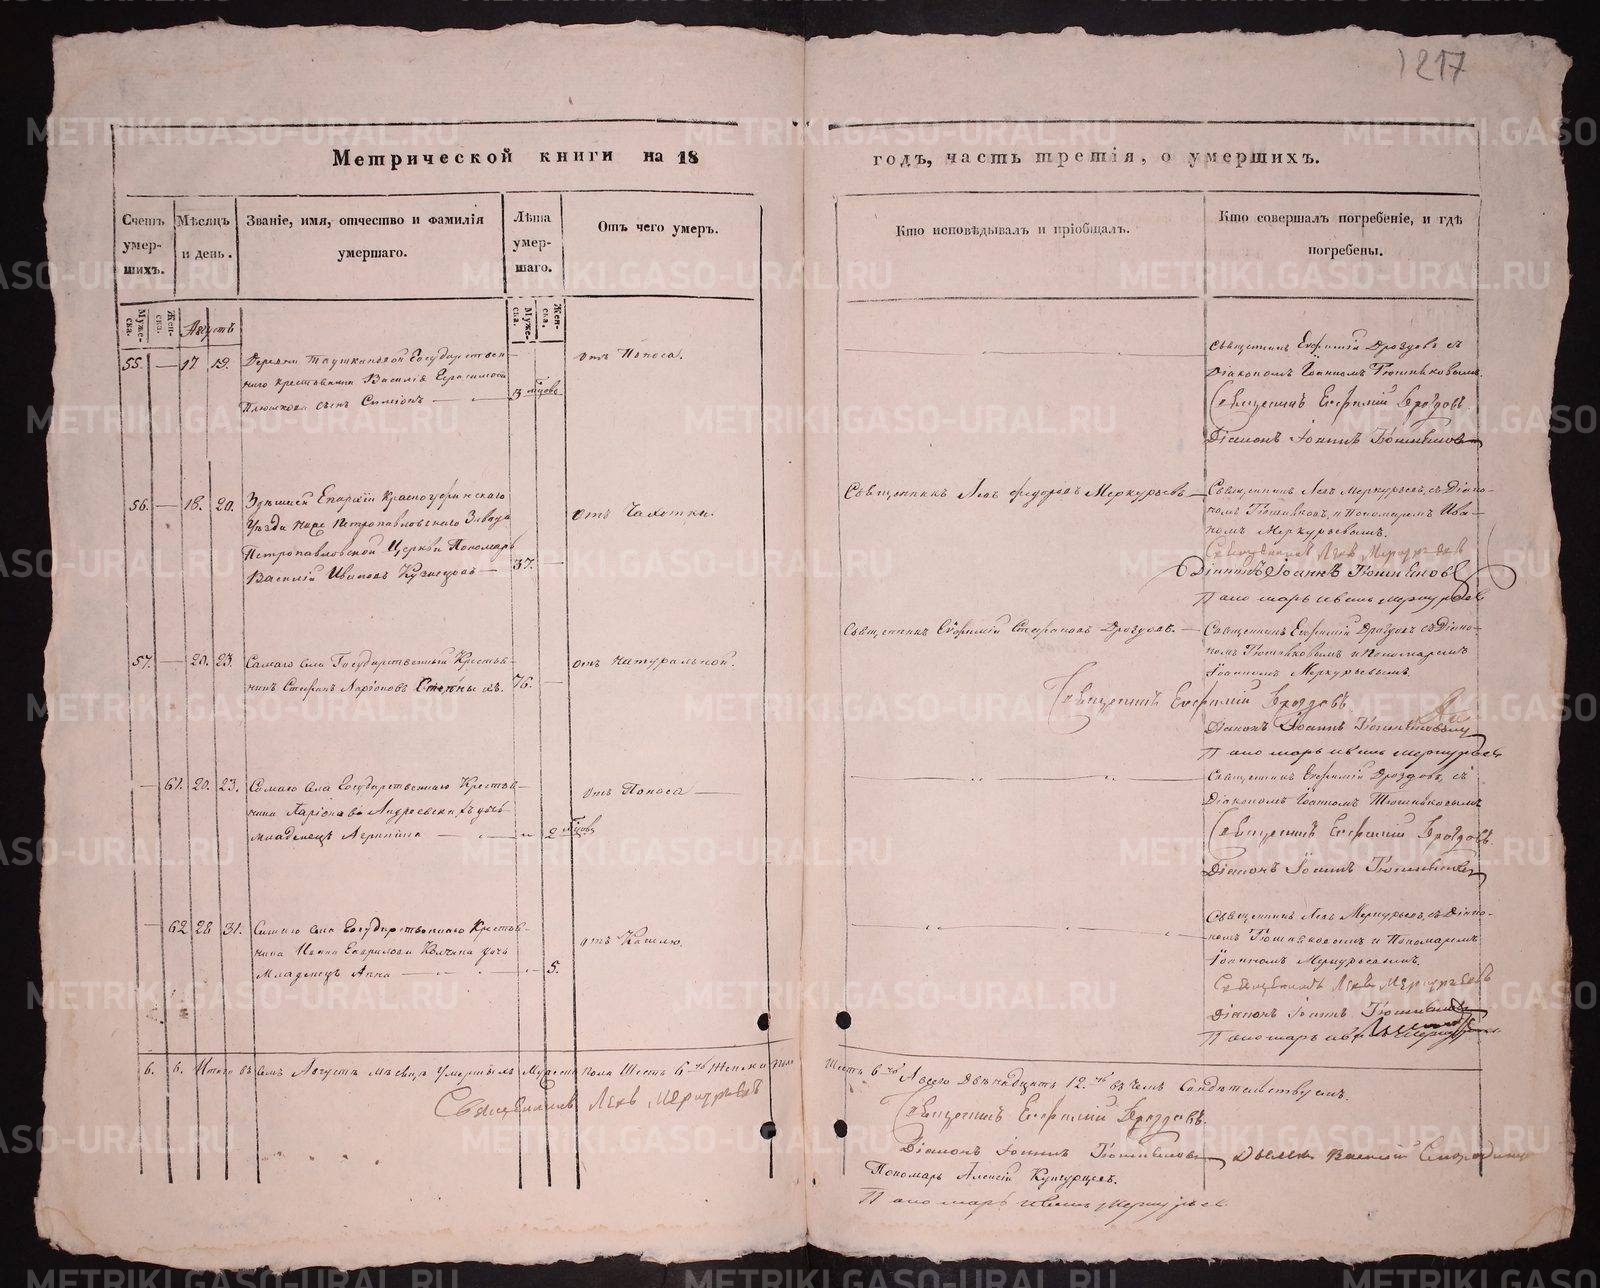 217
Метрической книги на 18
годъ, часть третія, о умершихъ.
Счетъ умер-шихъ.
Мѣсяцъ и день.
Званіе, имя, отчество и фамилія умершаго.
Лѣта умер-шаго.
Отъ чего умеръ.
Кто исповѣдывалъ и пріобщалъ.
Кто совершалъ погребеніе, и гдѣ погребены.
Муже-ска.
Жен-ска.
Августъ
Муже-ска.
Жен-ска.
55. — 17 19.
Деревни Государствен-
наго крестьянина Василія Герасимова
сынъ Симеонъ
3 мѣсцовъ
отъ Поноса.
Священникъ Евфимій Дроздовъ съ
Діакономъ Іоанномъ Тюшняковымъ.
Священникъ Евфимій Дроздовъ.
Діаконъ Іоаннъ Тюшняковъ
56. — 18. 20.
Здѣшней Епархіи Красноуфимскаго
Уѣзда Петропавловскаго Завода
Петропавловской Церкви Пономарь
Василій Ивановъ Кузнецовъ — 37. —
отъ Чахотки.
Священникъ Левъ Федоровъ Меркурьевъ
Священникъ Левъ Меркурьевъ, съ Діако-
номъ Тюшняковымъ, и Пономаремъ Ива-
номъ Меркурьевымъ.
Священникъ Левъ Меркурьевъ
Діаконъ Іоаннъ Тюшняковъ
Пономарь Иванъ Меркурьевъ
57. — 20. 23.
Самаго села Государственный Крестья-
нинъ Стефанъ Ларіоновъ 76. —
отъ натуральной.
Священникъ Евфимій Стефановъ Дроздовъ. —
Священникъ Евфимій Дроздовъ съ Діако-
номъ Тюшняковымъ и Пономаремъ
Іоанномъ Меркурьевымъ.
Священникъ Евфимій Дроздовъ.
Діаконъ Іоаннъ
Пономарь Иванъ Меркурьевъ
— 61. 20. 23.
Самаго села Государственнаго Крестья-
нина Ларіона Андреевскихъ дочь
младенецъ 2 мѣсцовъ
отъ Поноса —
Священникъ Евфимій Дроздовъ, съ
Діакономъ Іоанномъ Тюшняковымъ
Священникъ Евфимій Дроздовъ.
Діаконъ Іоаннъ Тюшняковъ
— 62 28 31.
Самаго села Государственнаго Крестья-
нина Ивана Гаврилова дочь
Младенецъ Анна 5.
отъ Кашлю.
Священникъ Левъ Меркурьевъ, съ Діако-
номъ Тюшняковымъ и Пономаремъ
Іоанномъ Меркурьевымъ.
Священникъ Левъ Меркурьевъ
Діаконъ Іоаннъ Тюшняковъ
Пономарь
6. 6. Итого въ семъ Августѣ мѣсяцѣ Умершихъ Мужеска пола Шесть 6-ть Женска пола
Шесть 6-ть А всего двѣнадцать 12-ть въ чемъ Свидѣтельствуемъ.
Священникъ Левъ Меркурьевъ
Священникъ Евфимій Дроздовъ.
Діаконъ Іоаннъ Тюшняковъ
Василій
Пономарь Алексій Кунгурцевъ.
Пономарь Иванъ Меркурьевъ
METRIKI.GASO-URAL.RU